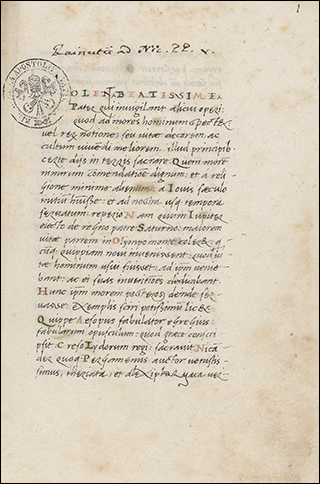 1
Rainutii ad Nic. PP. V.
OLENT BEATISSIME
Pater qui invigilant alicui operi:
quod ad mores hominum spectet
vel res notiones seu vitae decorem, ac
cultum vivendi meliorem. illud principib.
certe diis in terris sacrare. Quem morem
nimirum comendatione dignum: et a reli
gione minime alienum: a Iovis saeculo
initium habuisse: et ad nostra usq. tempora
servatum: reperio. Nam quum Iupiter
eiecto de regno patre Saturno: maiorem
vitae partem in Olympo monte coleret: q
quippiam novi invenissent: quod vi
tae hominum usui fuisset: ad ipm venie
bant: ac ei suas inventiones dedicabant.
Hunc ipm morem posteros deinde ser
vasse. Exemplis scri potissimum licet.
Quippe Aesopus fabulator egregius:
fabularum opusculum: quod graece conscri
psit: Creso Lydorum regi: sacravit. Nicā
der quoq. Pergamenus auctor vetustis
simus, theriaca: et alexipharmaca ver